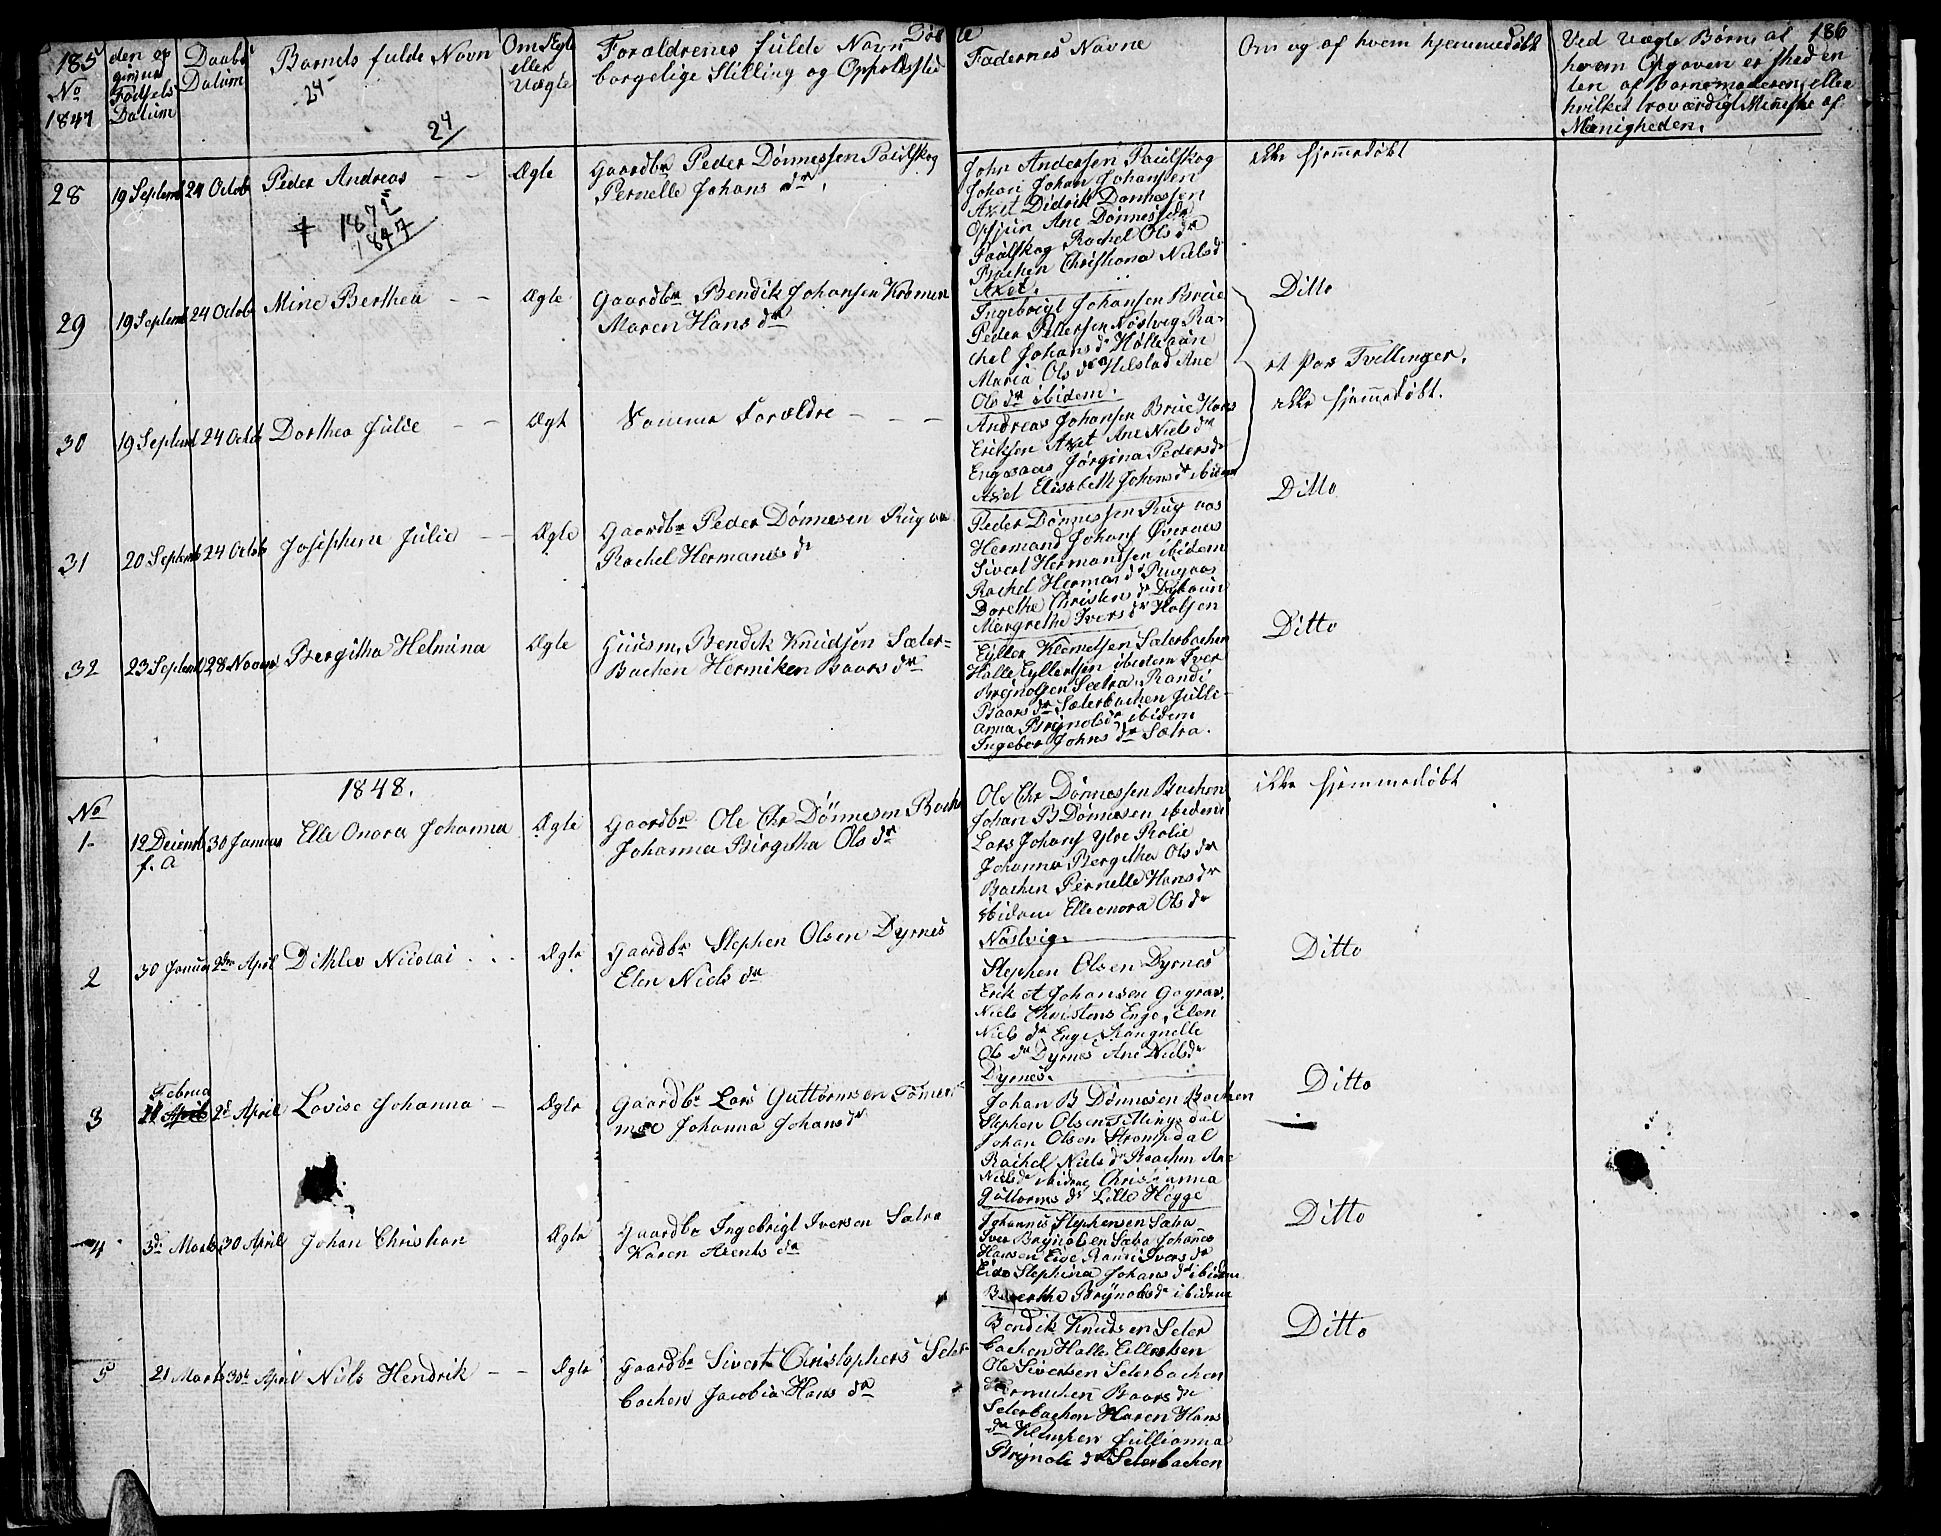 185
186
Døbte
No
1847
den op
givne
Fødsels
Datum
Daabs
Datum
Barnets fulde Navn
24
24
Om Ægte
eller
Uægte
Forældrenes fulde Navn
borgelige Stilling og Opholdssted
Fadernes Navne
Om og af hvem hjemmedøbt
Ved uægte Børn, af
hvem Opgaven er skeden
ten af Barnemoderen, eller
hvilket troværdigt Meniske af
Menigheden.
28
19 Septemb 24 Octob
Peder Andreas
1872
1847
Ægte
Gaardbr Peder Dønnessen Paulskog
Pernelle Johans dr
John Andersen Paulskog
Johan Johan Johansen
Axet Didrik Dønnessen
Ane Dønness dr
Paalskog Rachel Ols dr
Bachen Christiana Niels d
Axet.
ikke hjemmedøbt
29
19 Septemb 24 Octob
Mine Berthea
Ægte
Gaardbr Bendik Johansen
Maren Hans dr
Ingebrigt Johansen Brue
Peder Pettersen Nøstvig Ra-
chel Johans dr
Maria Ols dr Hilstad Ane
Ols dr ibidem.
Ditto
et Par Tvillinger.
30
19 Septemb 24 Octob
Dorthea Julie
Ægt
Samme Forældre
Andreas Johansen Brue Hans
Eriksen Axet Ane Niels dr
Engaaas Jørgina Peders dr
Axet Elisabeth Johans dr ibidem
ikke hjemmedøbt.
31
20 Septemb 24 Octob
Josephine Julie
Ægte
Gaardbr Peder Dønnesen Rugaa
Rachel Hermans dr
Peder Dønnessen Rugaas
Hermand Johans Øveraas
Sivert Hermansen ibidem
Rachel Hermans dr Rugaas
Dorethe Christens dr
Margrethe Ivers dr Holsen
Ditto
32
23 Septemb 28 Novemb
Bergitha Helmina
Ægte
Huusm. Bendik Knudsen Sæter-
Bachen Hermiken Baars dr
Eyller Klemetsen Sæterbachen
Halle Eyllertsen ibidem Iver
Brynolsen Sætra, Randi
Baars dr Sæterbachen Julli-
anna Brynols dr ibidem
Ingebor Johns dr Sætra.
Ditto
No
1848.
1
12 Decemb 30 Januar
f. A
Elle Onora Johanna
Ægte
Gaardbr Ole Chr Dønnesen Bach
Johanna Birgitha Ols dr
Ole Chr Dønnessen Bachen
Johan B Dønnesen ibidem
Lars Johans Rolie
Johanna Bergitha Ols dr
Bachen Pernelle Hans dr
ibidem Elleonora Ols dr
Nøstvig.
ikke hjemmedøbt
2
30 Januar 2den April
Ditlev Nicolai
Ægte
Gaardbr Stephen Olsen Dyrnes
Elen Niels dr
Stephen Olsen Dyrnes
Erik A Johansen
Niels Christens Enge, Elen
Niels dr Enge
Ols dr Dyrnes Ane Niels dr
Dyrnes.
Ditto
3
Februa
21 April 2d April
Lovise Johanna
Ægte
Gaardbr Lars Guttormsen Tømer
moe Johanna Johans dr
Johan B Dønnesen Bachen
Stephen Olsen Tillingsdal
Johan Olsen Strømsdal
Rachel Niels dr Bachen Ane
Niels dr ibidem Christianna
Guttorms dr Lille Hegge
Ditto
4
3de Marts 30 April
Johan Christian
Ægte
Gaardbr Ingebrigt Iversen Sætra
Karen Arents dr
Johannis Stephensen Sætra
Iver Brynolsen Sætra Johanes
Hansen Eide, Randi Ivers dr
Eide Stephina Johans dr ibidem
Berthe Brynols dr ibidem
Ditto
5
21 Marts 30t April
Niels Hendrik
Ægte
Gaardbr Sivert Christophers Seter
bachen Jacobia Hans dr
Bendik Knudsen Seter
bachen Halle Eillertsen
Ole Sivertsen Seterbachen
Baars dr
Seterbachen Haren Hans
dr Klempen Jullianna
Brynols dr Seterbachen
Ditto